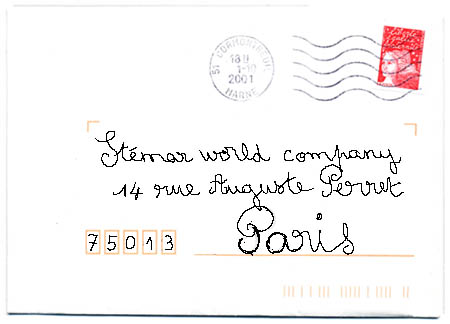 18 H
1-10
2001
MARNE
Stémar world company
14 rue Auguste Perret
75013 Paris